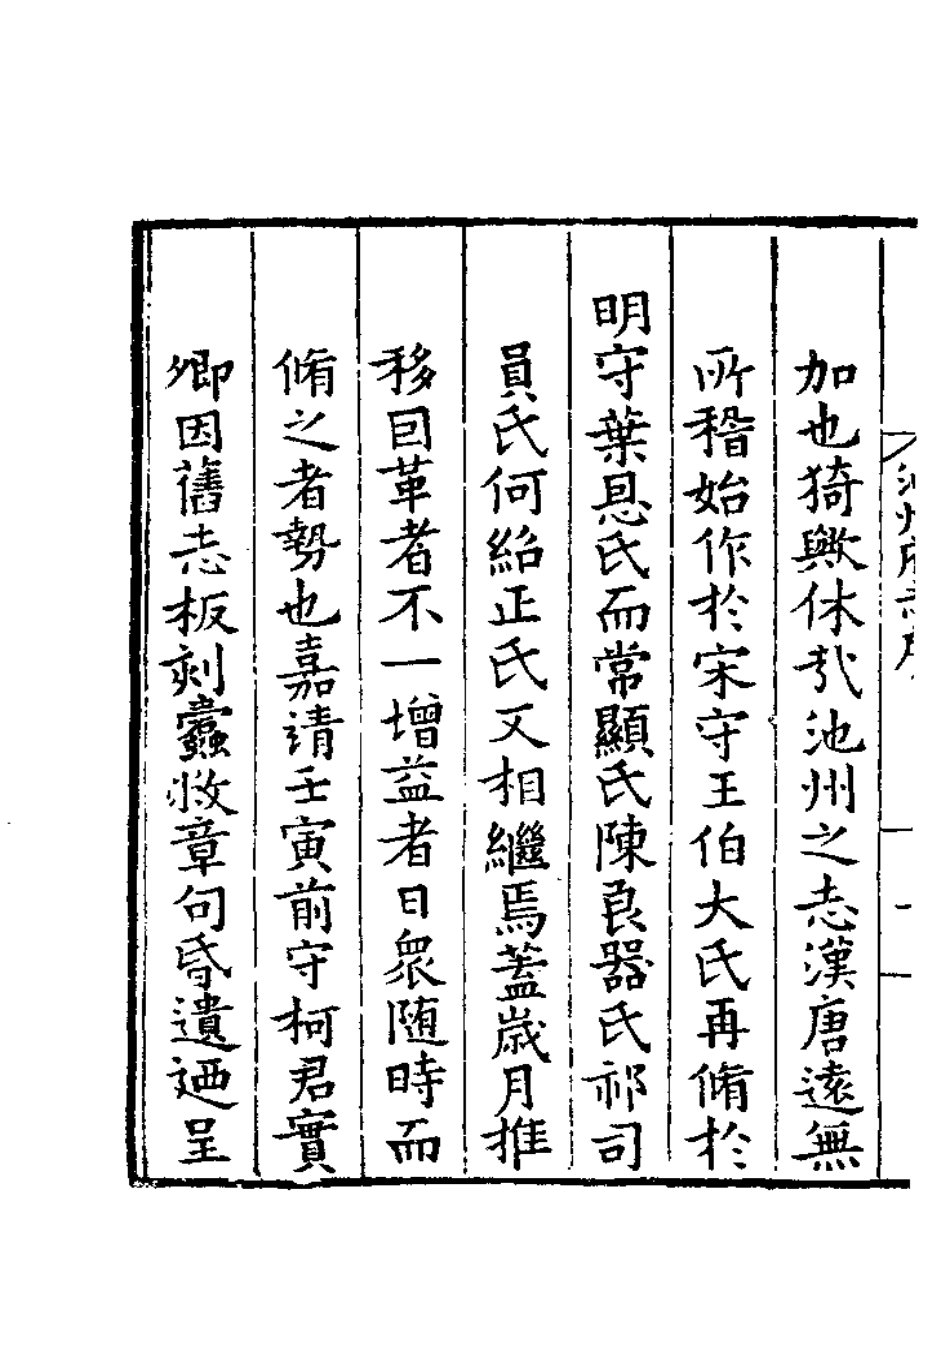 加也猗歟休㦲池州之志漢唐遠無
所稽始作於宋守王伯大氏再脩於
明守葉恩氏而常顯氏陳良器氏祁司
員氏何紹正氏又相繼焉蓋歲月推
移因革者不一增益者日衆随時而
脩之者勢也嘉靖壬寅前守柯君實
卿因舊志板刻蠹敚章句昏遺廼呈